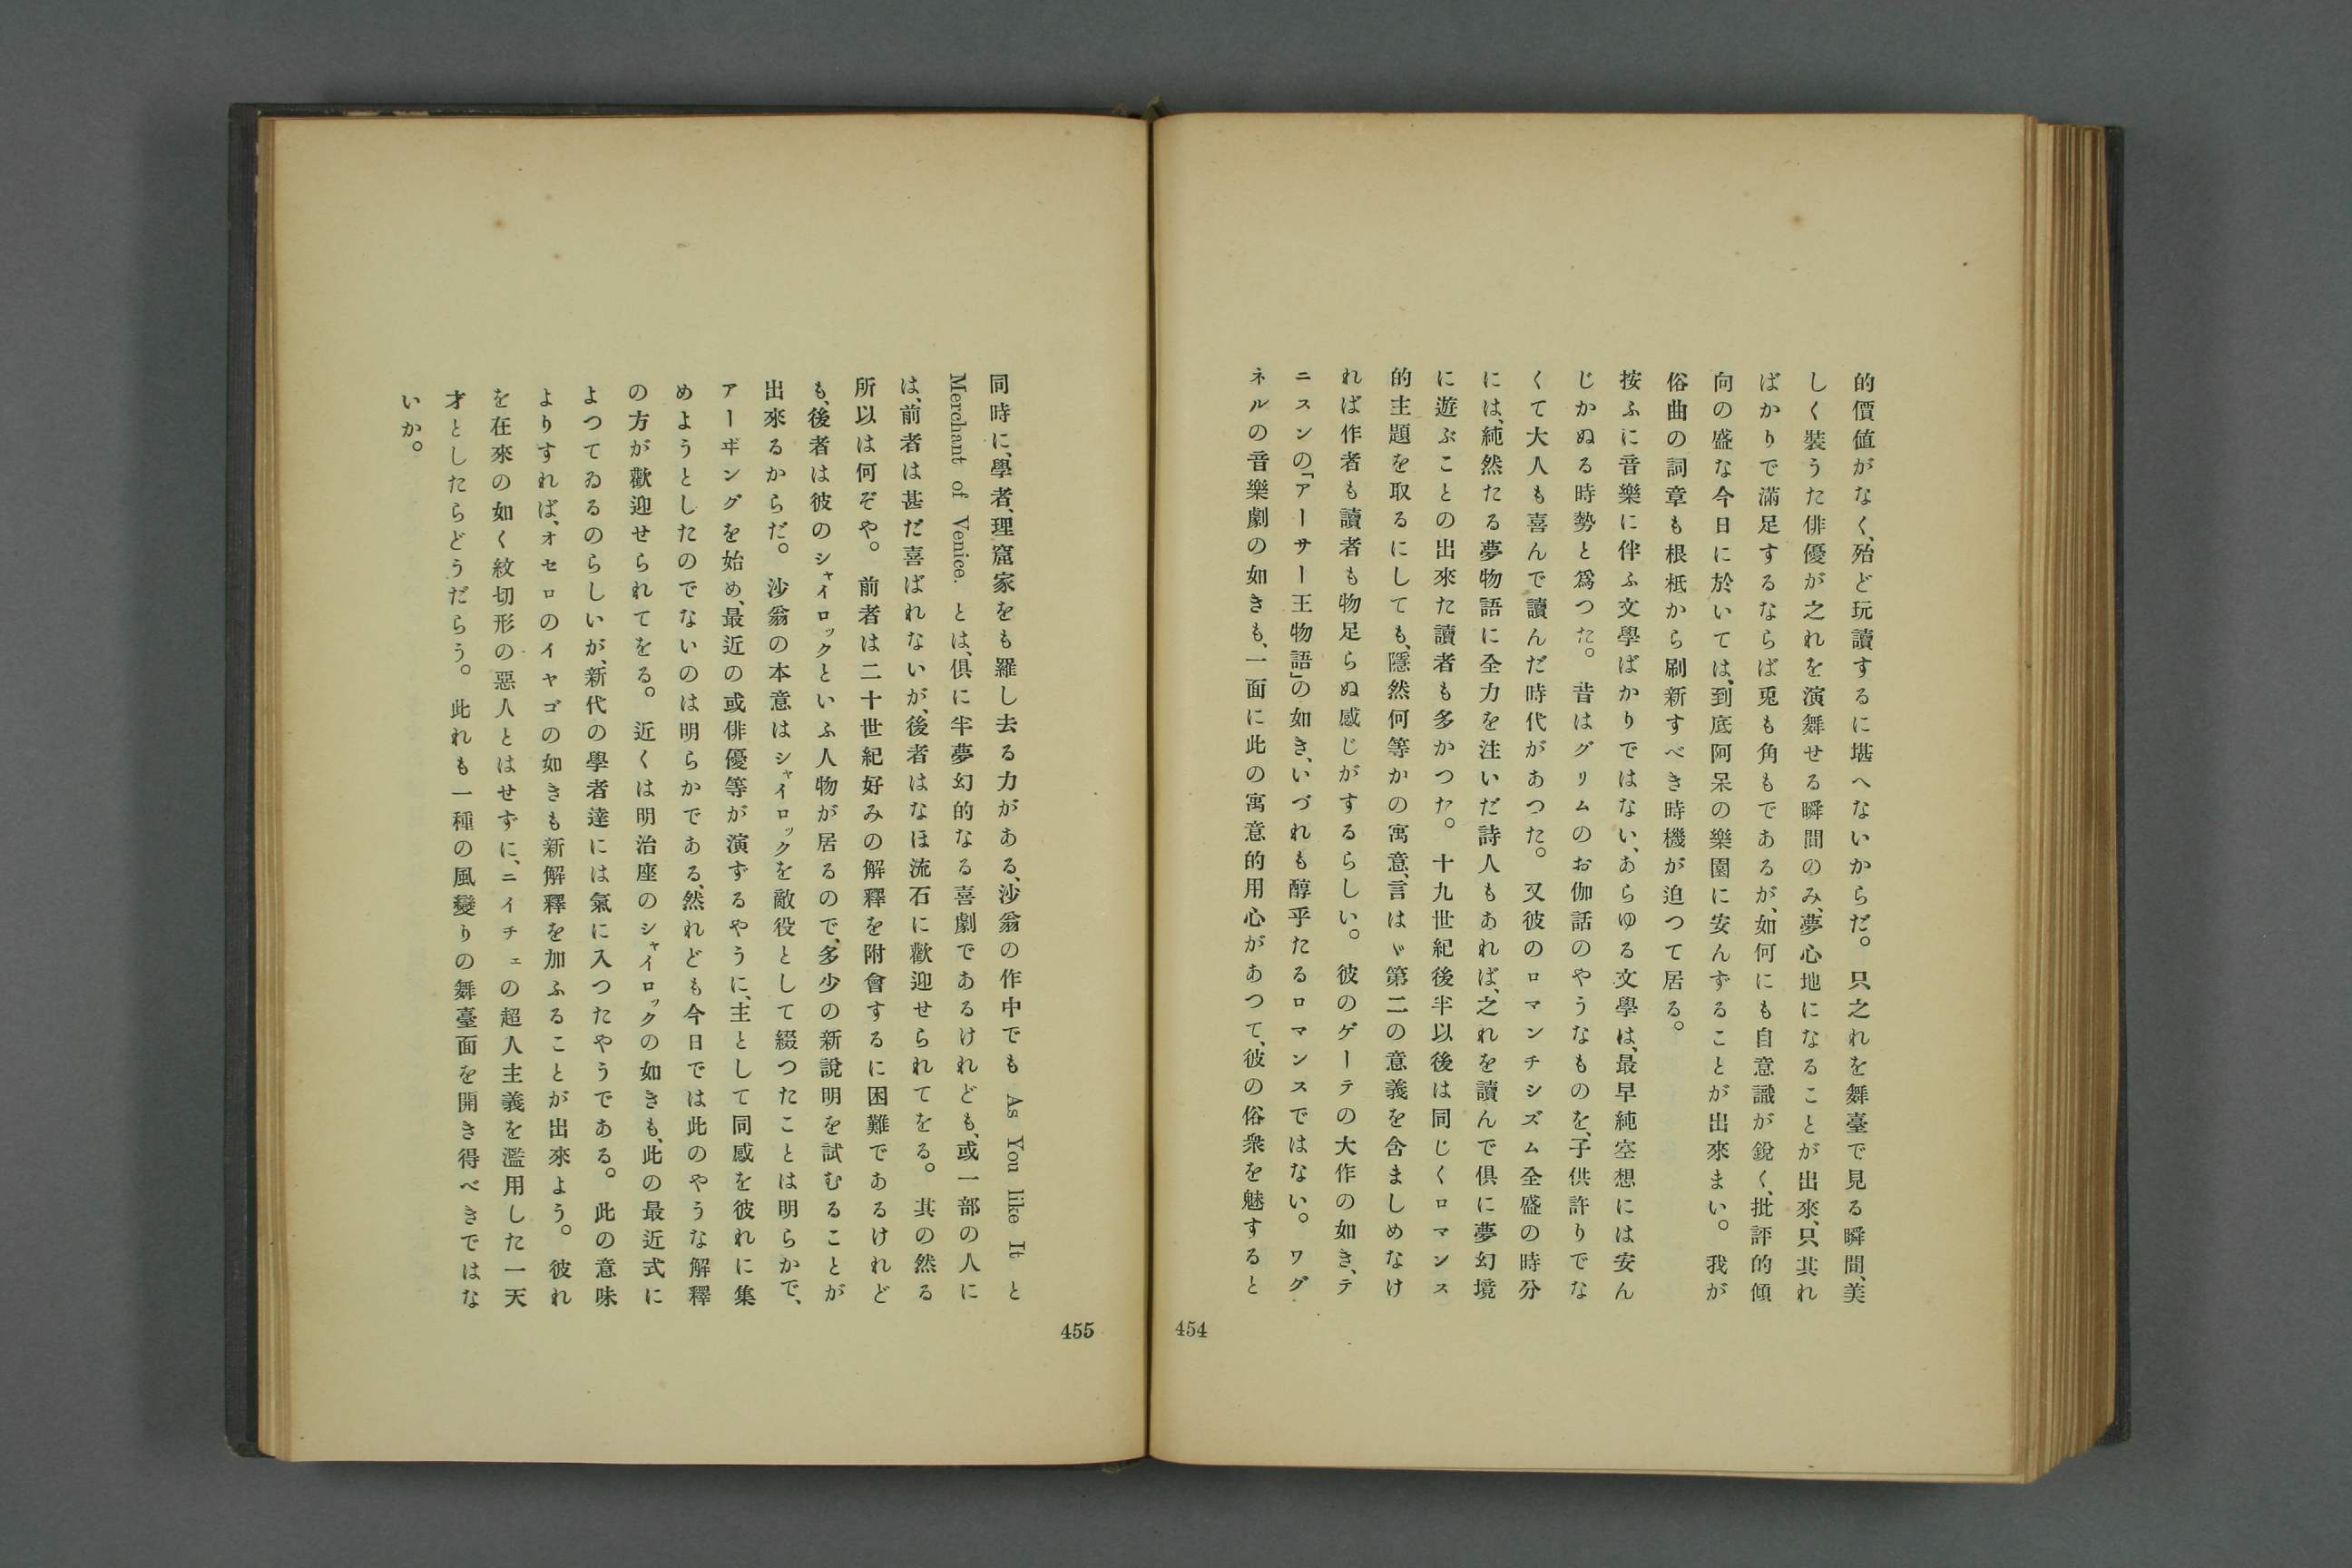 的價値がなく、殆ど玩讀するに堪へないからだ。只之れを舞臺で見る瞬間、美
しく裝うた俳優が之れを演舞せる瞬間のみ、夢心地になることが出來、只其れ
ばかりで滿足するならば兎も角もであるが、如何にも自意識が銳く、批評的傾
向の盛な今日に於いては、到底阿呆の樂園に安んずることが出來まい。我が
俗曲の詞章も根柢から刷新すべき時機が迫つて居る。
按ふに音樂に伴ふ文學ばかりではない、あらゆる文學は、最早純空想には安ん
じかぬる時勢と爲つた。昔はグリムのお伽話のやうなものを、子供許りでな
くて大人も喜んで讀んだ時代があつた。又彼のロマンチシズム全盛の時分
には、純然たる夢物語に全力を注いだ詩人もあれば、之れを讀んで俱に夢幻境
に遊ぶことの出來た讀者も多かつた。十九世紀後半以後は同じくロマンス
的主題を取るにしても、隱然何等かの寓意、言はゞ第二の意義を含ましめなけ
れば作者も讀者も物足らぬ感じがするらしい。彼のゲーテの大作の如き、テ
ニスンの「アーサー王物語」の如き、いづれも醇乎たるロマンスではない。ワグ
ネルの音樂劇の如きも、一面に此の寓意的用心があつて、彼の俗衆を魅すると
454
同時に、學者、理窟家をも羅し去る力がある、沙翁の作中でも As You like It と
Merchant of Venice. とは、俱に半夢幻的なる喜劇であるけれども、或一部の人に
は、前者は甚だ喜ばれないが、後者はなほ流石に歡迎せられてをる。其の然る
所以は何ぞや。前者は二十世紀好みの解釋を附會するに困難であるけれど
も、後者は彼のシャイロックといふ人物が居るので、多少の新說明を試むることが
出來るからだ。沙翁の本意はシャイロックを敵役として綴つたことは明らかで、
アーヰングを始め、最近の或俳優等が演ずるやうに、主として同感を彼れに集
めようとしたのでないのは明らかである、然れども今日では此のやうな解釋
の方が歡迎せられてをる。近くは明治座のシャイロックの如きも、此の最近式に
よつてゐるのらしいが、新代の學者達には氣に入つたやうである。此の意味
よりすれば、オセロのイヤゴの如きも新解釋を加ふることが出來よう。彼れ
を在來の如く紋切形の惡人とはせずに、ニイチェの超人主義を濫用した一天
才としたらどうだらう。此れも一種の風變りの舞臺面を開き得べきではな
いか。
455